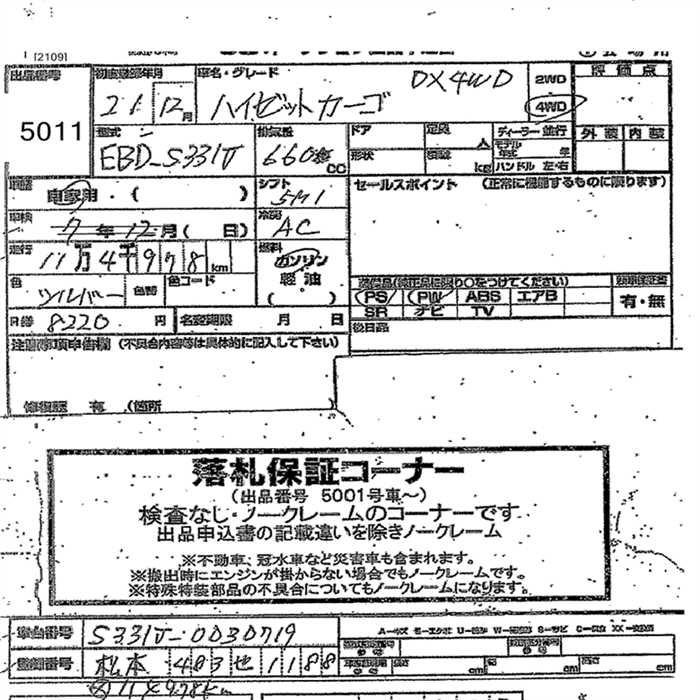 [2109]
出品番号 初度登録年月 車名・グレード DX4WD 2WD 評価点
5011 21 12月 ハイゼットカーゴ 4WD
型式 排気量 ドア 定員 ディーラー 並行 外装 内装
EBD-S331V 660 CC 形状 人 kg モデル年式 年 ハンドル 左・右
車歴 自家用・( ) シフト 5M セールスポイント (正常に機能するものに限ります)
車検 7年12月( 日) 冷房 AC
走行 11万4千978km 燃料 ガソリン
軽油
色 シルバー 色替 色コード ( ) 装備品(純正品に限り○をつけてください)
PS PW ABS エアB 有・無
R券 8220円 名変期限 月 日 SR ナビ TV
後日品
注意事項申告欄 (不具合内容等は具体的に記入して下さい)
修復歴 有 (箇所
落札保証コーナー
(出品番号 5001号車~)
検査なし・ノークレームのコーナーです
出品申込書の記載違いを除きノークレーム
※不動車、冠水車など災害車も含まれます。
※搬出時にエンジンが掛からない場合でもノークレームです。
※特殊特装部品の不具合についてもノークレームになります。
車台番号 S331V-0030719
登録番号 松本 483 せ 1188 cm cm cm